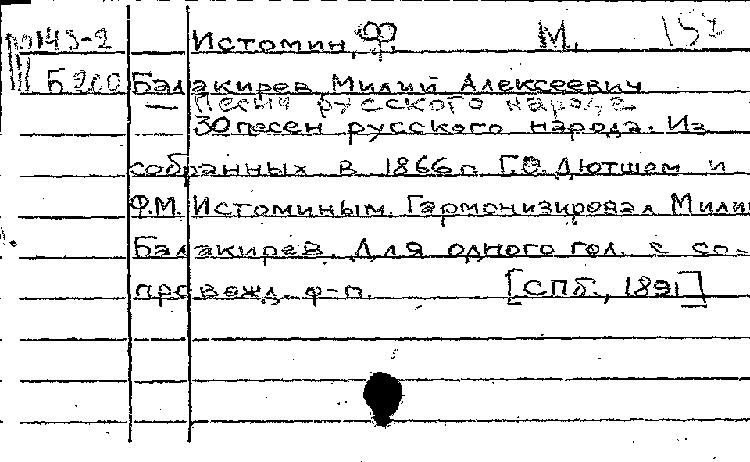 143-2 Истомин, Ф. М. 
Б200 Балакирев Милий Алексеевич
— Песни русского народа
30 песен русского народа. Из
собранных в 1886 г. Г.О. Дютшем и
Ф.М. Истоминым. Гармонизировал Милий
Балакирев. Для одного гол. с со-
провожд. ф-п. [СПб., 1891]